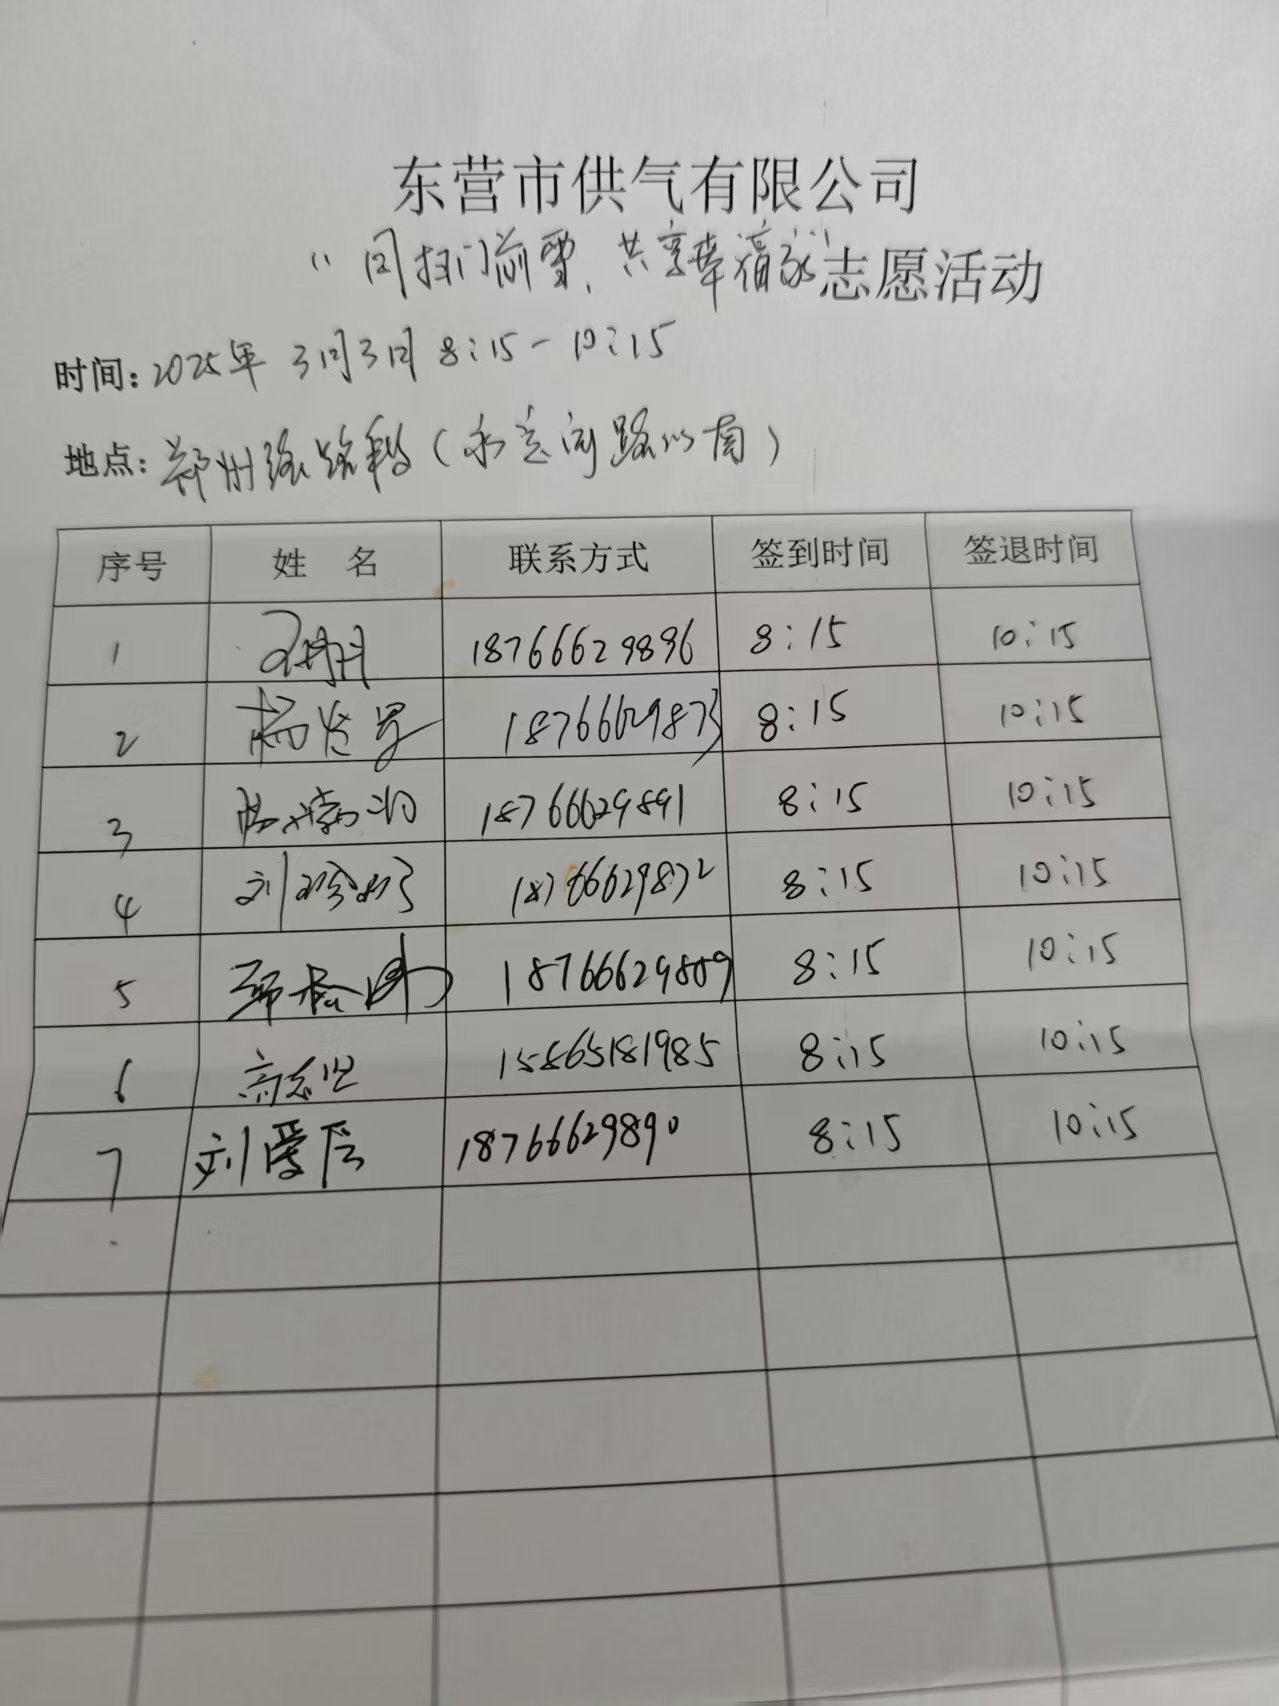 东营市供气有限公司
“同扫门前雪，共享幸福家”志愿活动
时间：2025年3月3日 8:15-10:15
地点：郑州路路段（永安河路以南）
序号 姓名 联系方式 签到时间 签退时间
1 18766629896 8:15 10:15
2 杨 18766629873 8:15 10:15
3 18766629891 8:15 10:15
4 刘 18766629872 8:15 10:15
5 18766629809 8:15 10:15
6 高志 15865181985 8:15 10:15
7 刘爱 18766629890 8:15 10:15